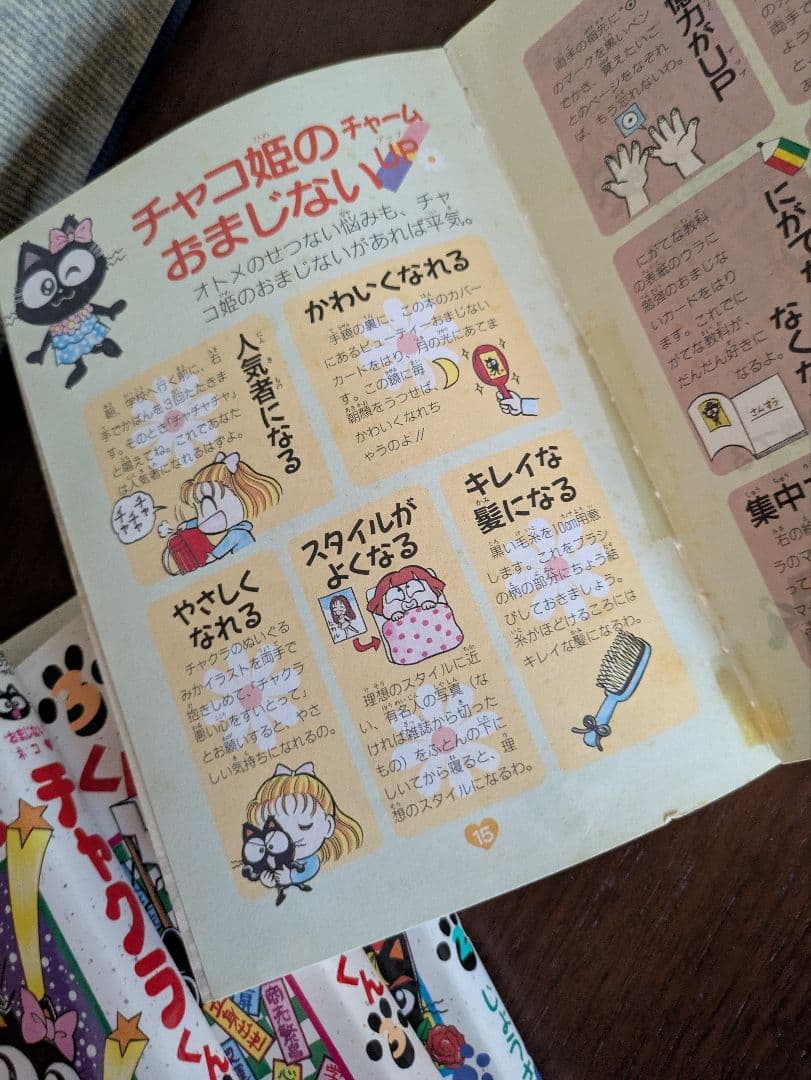 チャコ姫のチャーム
おまじないUP
オトメのせつない悩みも、チャ
コ姫のおまじないがあれば平気。
人気者になる
朝、学校へ行く前に、右
手でかばんを3回たたきま
す。そのとき「チャチャチャ」
と唱えてね。これであなた
は人気者になれるはずよ。
チャ
チャ
チャ
かわいくなれる
手鏡の裏に、この本のカバー
にあるビューティーおまじない
カードをはり、月の光にあてま
す。この鏡に毎
朝顔をうつせば、
かわいくなれち
ゃうのよ!!
やさしく
なれる
チャクラのぬいぐる
みかイラストを両手で
抱きしめて、「チャクラ
悪い心をすいとって」
とお願いすると、やさ
しい気持ちになれるの。
スタイルが
よくなる
理想のスタイルに近
い、有名人の写真(な
ければ雑誌から切った
もの)をふとんの下に
しいてから寝ると、理
想のスタイルになるわ。
キレイな
髪になる
黒い毛糸を10cm用意
します。これをブラシ
の柄の部分にちょう結
びしておきましょう。
糸がほどけるころには
キレイな髪になるわ。
15
力がUP
両手の指先に"◎"
のマークを黒いペン
でかき、覚えたいこ
とのページをなぞれ
ば、もう忘れないわ。
にがてな教科
の表紙のウラに
勉強のおまじな
いカードをはり
ます。これでに
がてな教科が、
だんだん好きに
なるよ。
さんすう
集中
チャクラくん
くん
くん
商売繁盛
立身出世
2